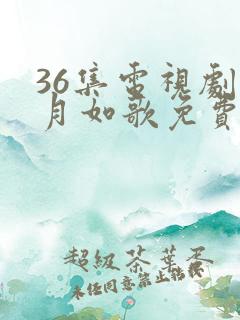 36集電視劇
月如歌免費
超級茶葉蛋
未經同意禁止轉載